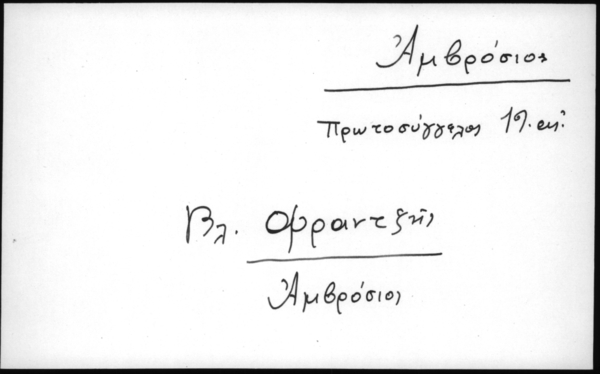 Ἀμβρόσιος
Πρωτοσύγγελος 19. αἰ.
Βλ. Φραντζῆς
Ἀμβρόσιος